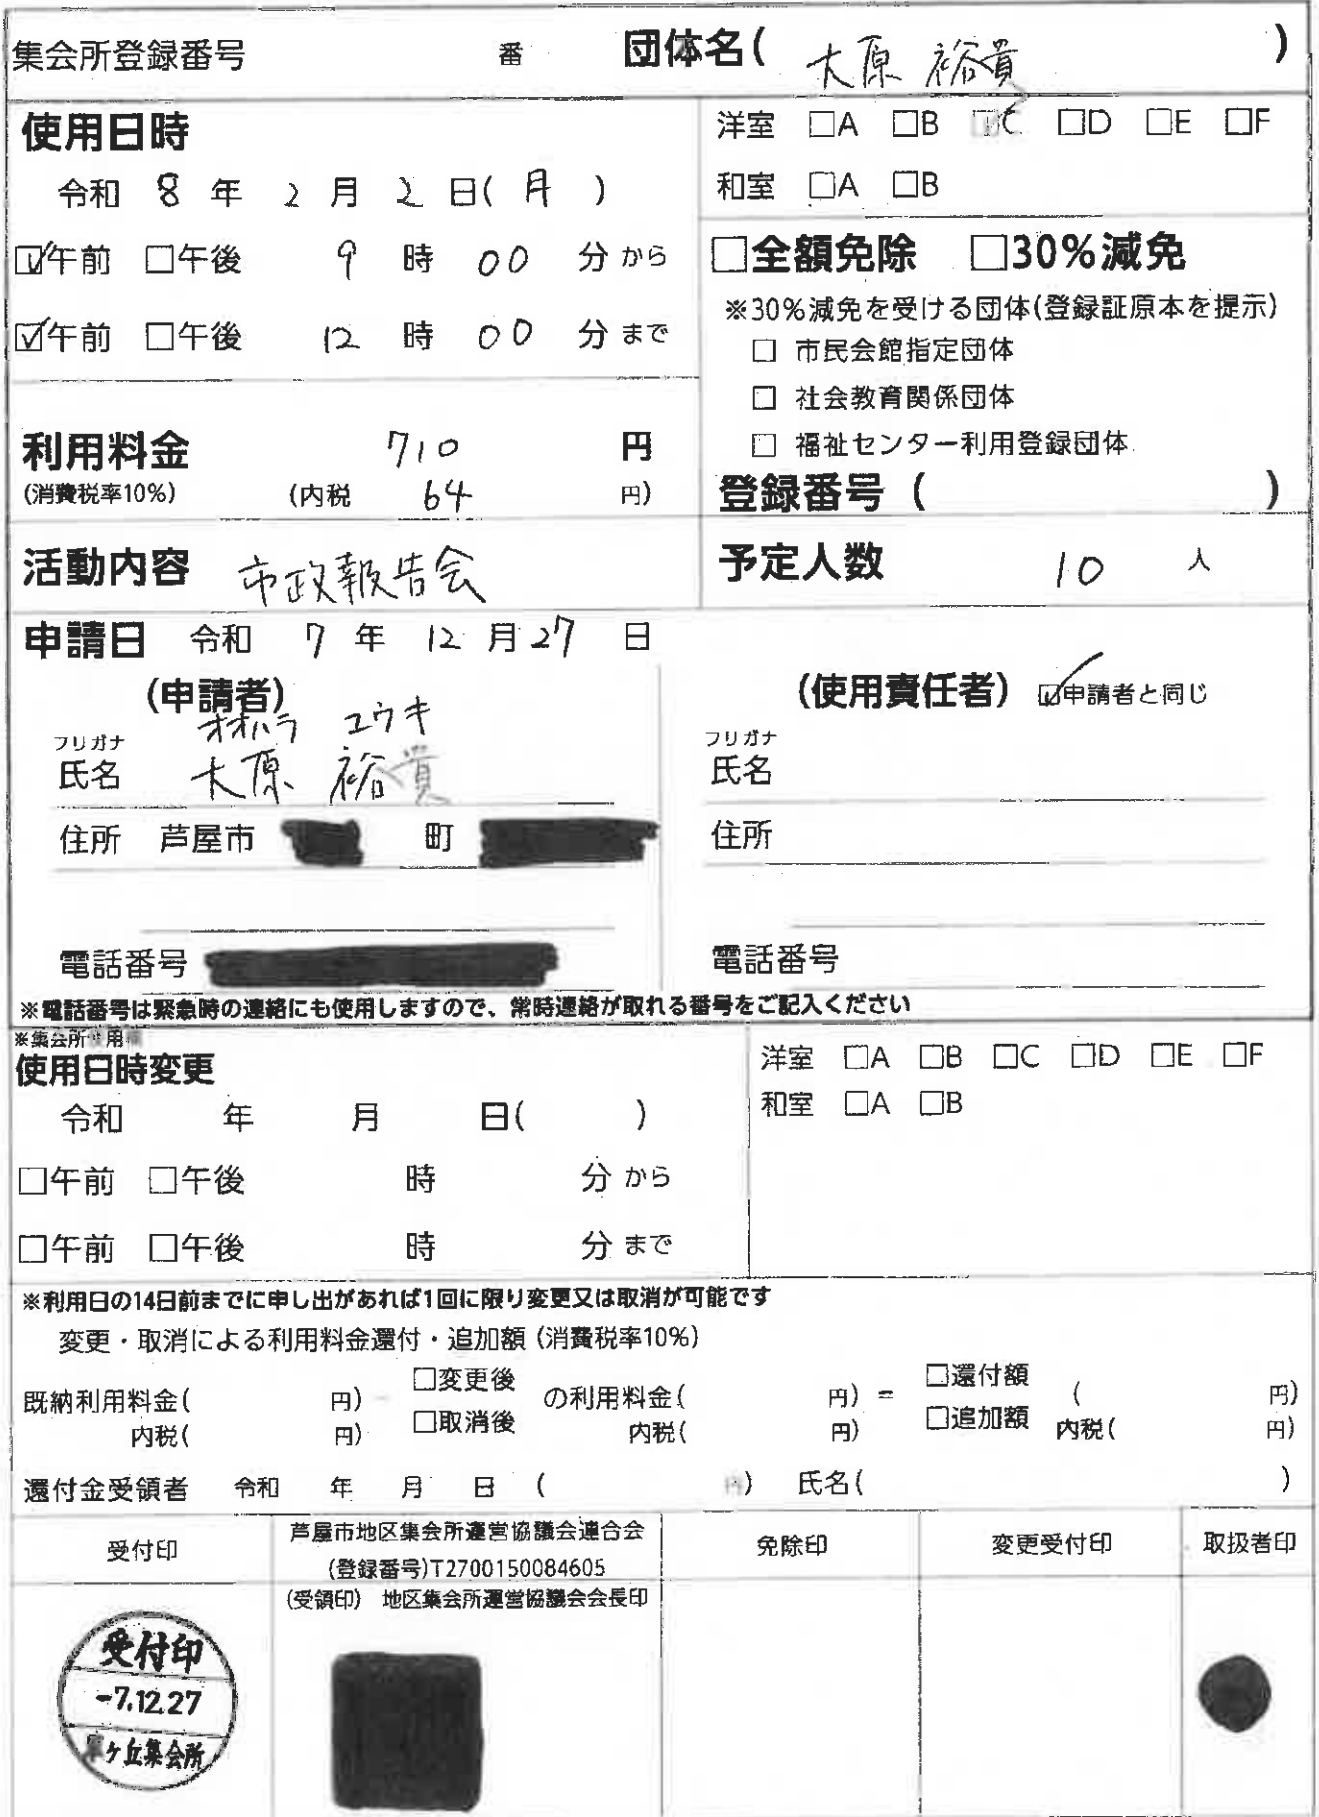 集会所登録番号 番 団体名( 大原 裕貴 )
使用日時
令和 8 年 2 月 2 日( 月 )
☑午前 □午後 9 時 00 分 から
☑午前 □午後 12 時 00 分 まで
洋室 □A □B ☑C □D □E □F
和室 □A □B
□全額免除 □30%減免
※30%減免を受ける団体(登録証原本を提示)
□ 市民会館指定団体
□ 社会教育関係団体
□ 福祉センター利用登録団体
登録番号 ( )
利用料金 710 円
(消費税率10%) (内税 64 円)
活動内容 市政報告会
予定人数 10 人
申請日 令和 7 年 12 月 27 日
(申請者)
フリガナ オオハラ ユウキ
氏名 大原 裕貴
住所 芦屋市 町
電話番号
(使用責任者) ☑申請者と同じ
フリガナ
氏名
住所
電話番号
※電話番号は緊急時の連絡にも使用しますので、常時連絡が取れる番号をご記入ください
※集会所使用欄
使用日時変更
令和 年 月 日( )
□午前 □午後 時 分 から
□午前 □午後 時 分 まで
洋室 □A □B □C □D □E □F
和室 □A □B
※利用日の14日前までに申し出があれば1回に限り変更又は取消が可能です
変更・取消による利用料金還付・追加額 (消費税率10%)
既納利用料金( 円) - □変更後 □取消後 の利用料金( 円) = □還付額 □追加額 ( 円)
内税( 円) 内税( 円) 内税( 円)
還付金受領者 令和 年 月 日 ( 円) 氏名( )
受付印
芦屋市地区集会所運営協議会連合会
(登録番号)T2700150084605
(受領印) 地区集会所運営協議会会長印
免除印
変更受付印
取扱者印
受付印
-7.12.27
ケ丘集会所